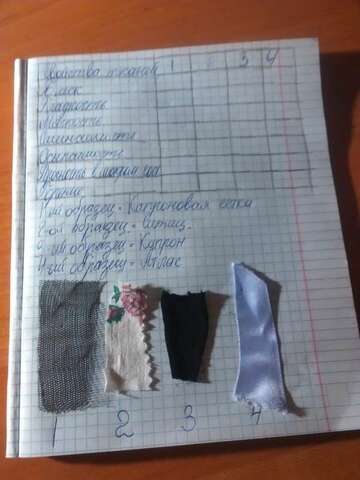 Свойства тканей 1 2 3 4
Блеск
Гладкость
Мягкость
Сминаемость
Осыпаемость
Прочность в мокром виде
Горение
1-ый образец - Капроновая сетка
2-ой образец - Ситец
3-ий образец - Капрон
4-ый образец - Атлас
1 2 3 4